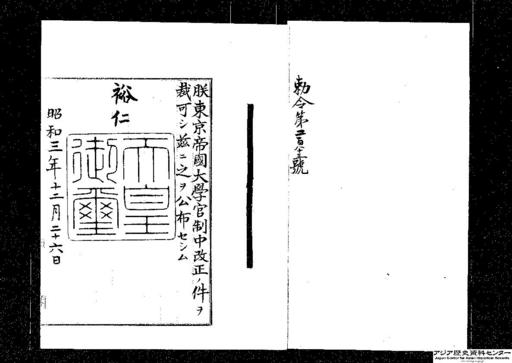 勅令第二百八十號
朕東京帝國大學官制中改正ノ件ヲ
裁可シ茲ニ之ヲ公布セシム
裕仁
天皇
御璽
昭和三年十二月二十六日
アジア歴史資料センター
Japan Center for Asian Historical Records